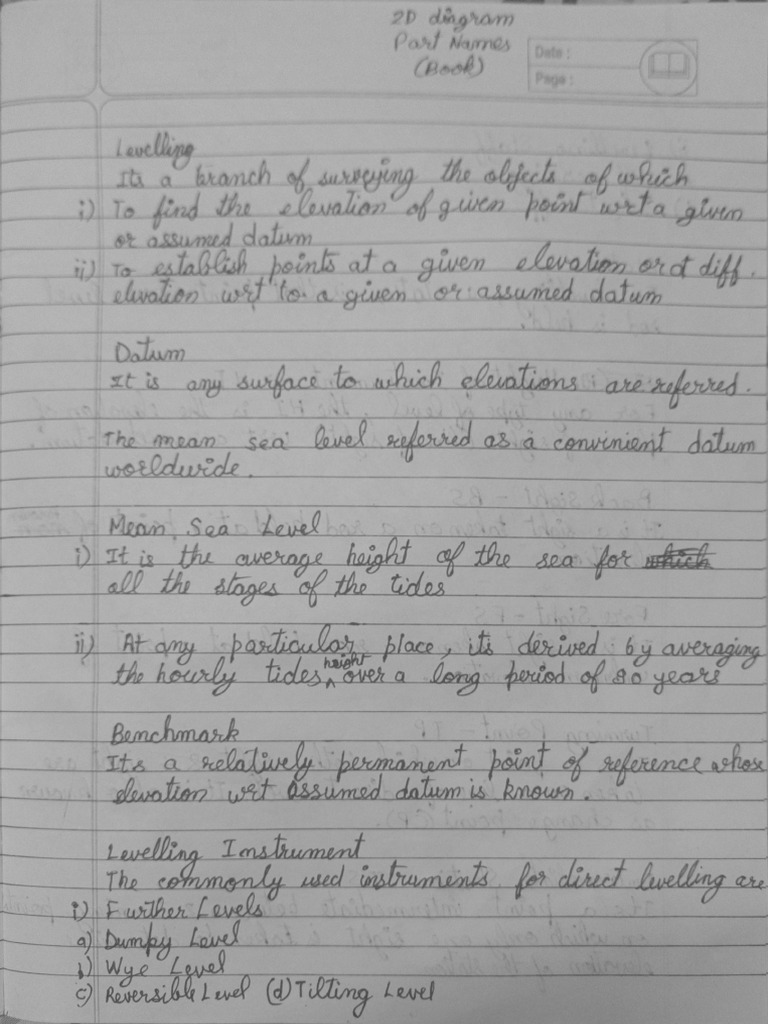 2D diagram
Part Names
(Book)
Date :
Page :
Levelling
Its a branch of surveying the objects of which
i) To find the elevation of given point wrt a given
or assumed datum
ii) To establish points at a given elevation or at diff.
elevation wrt to a given or assumed datum
Datum
It is any surface to which elevations are referred.
The mean sea level referred as a convinient datum
worldwide.
Mean Sea Level
i) It is the average height of the sea for which
all the stages of the tides
ii) At any particular place, its derived by averaging
the hourly tides height over a long period of years
Benchmark
Its a relatively permanent point of reference whose
elevation wrt assumed datum is known.
Levelling Instrument
The commonly used instruments for direct levelling are
i) Further Levels
a) Dumpy Level
b) Wye Level
c) Reversible Level (d) Tilting Level